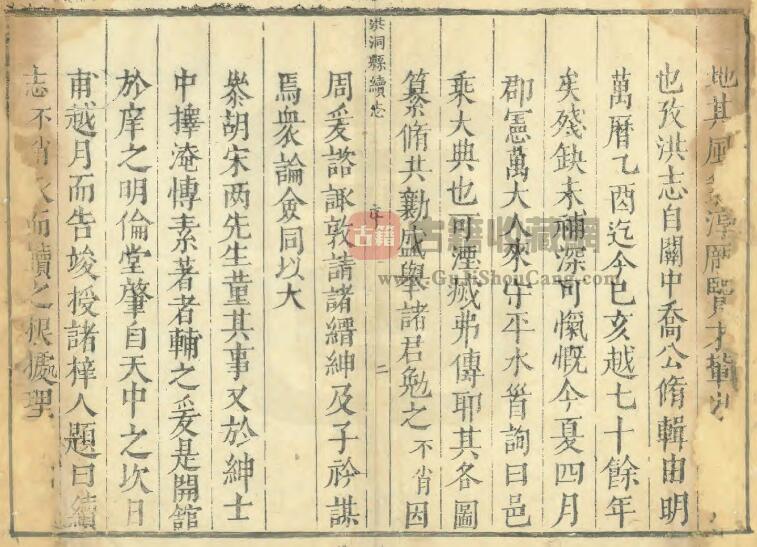 地其風淳厖賢才輩
也攷洪志自關中喬公脩輯由明
萬曆乙酉迄今己亥越七十餘年
矣殘缺未補深可愾慨今夏四月
郡憲萬大人來守平水首詢曰邑
乘大典也可湮滅弗傳耶其各圖
纂脩共勷盛舉諸君勉之不肖因
洪洞縣續志 序 二
周爰諮諏敦請諸縉紳及子衿謀
焉衆論僉同以大
叅胡宋兩先生董其事又於紳士
中擇淹博素著者輔之爰是開館
於庠之明倫堂肇自天中之次日
甫越月而告竣授諸梓人題曰續
志不肖而續之根據理
古籍 古籍收藏網
www.GuJiShouCang.com